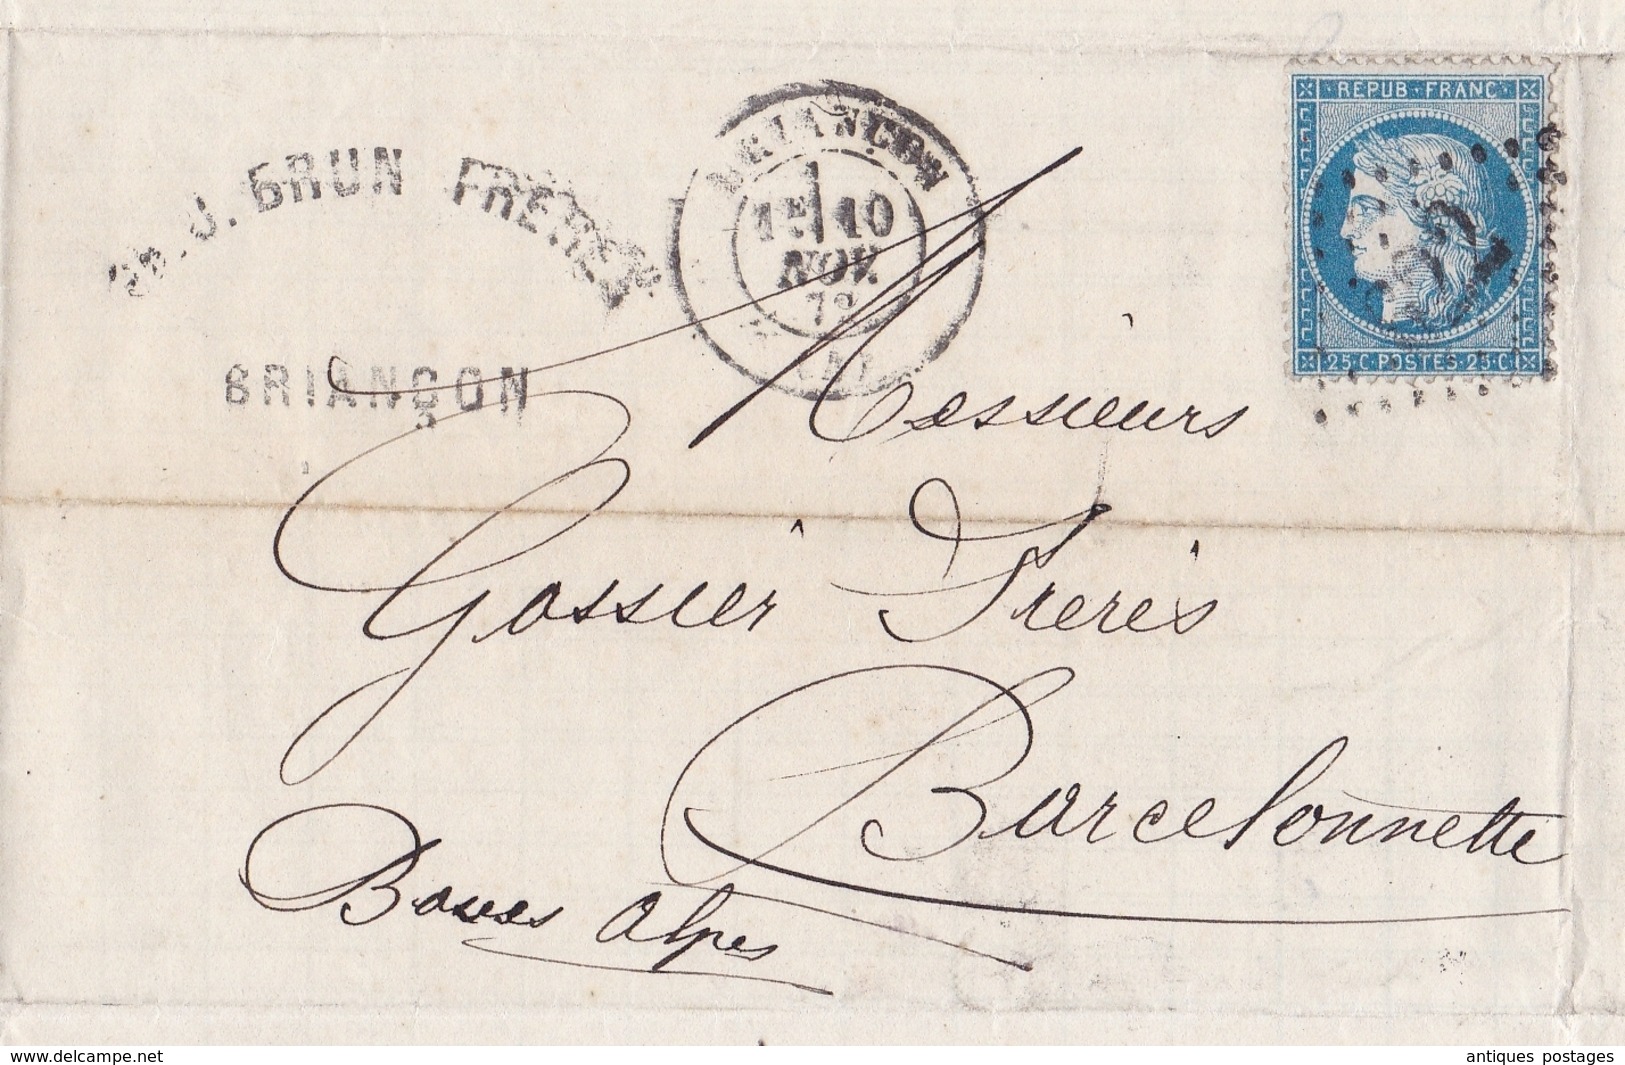 J. BRUN FRÈRES
BRIANÇON
BRIANÇON
1E 10
NOV.
REPUB·FRANC
25·C·POSTES·25·C
Messieurs
Gassier Frères
Barcelonnette
Basses Alpes
www.delcampe.net
antiques postages